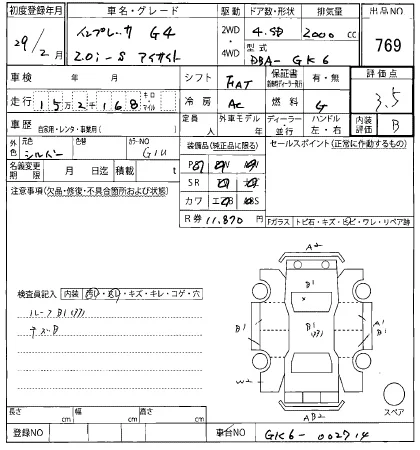 初度登録年月 車名・グレード 駆動 ドア数・形状 排気量 出品NO
29/2月 インプレッサ G4 2WD・4WD 4.SD 2000 cc 769
2.0i-S アイサイト 型式 DBA-GK6
車検 年 月 シフト FAT 保証書 有・無 評価点
走行 15万2千168 キロ マイル 冷房 AC 燃料 G 3.5
車歴 自家用・レンタ・事業用( ) 定員 人 外車モデル 年 ディーラー・並行 ハンドル 左・右 内装評価 B
外色 元色 シルバー 色替 カラーNO G1U 装備品(純正品に限る) セールスポイント(正常に作動するもの)
名義変更期限 月 日迄 積載 t
SR
注意事項(欠品・修復・不具合箇所および状態) カワ
R券 11,870 円
Fガラス トビ石・キズ・ヒビ・ワレ・リペア跡
A2
検査員記入 内装 ・キズ・キレ・コゲ・穴
B1
ルーフB1(ﾀﾀ)
B1
B1
(ﾀﾀ)
A1
B1
W2
AB2
スペア
長さ cm 幅 cm 高さ cm
登録NO 車台NO GK6-002714